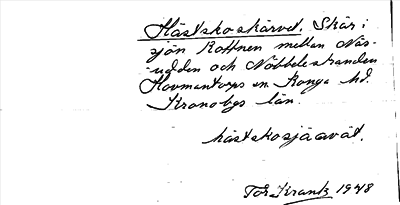 Hästskoskärvet. Skär i
sjön Rottnen mellan Näs-
udden och Nöbbelestranden
Hovmantorps sn Konga hd.
Kronobgs län.
Tor Krantz 1948